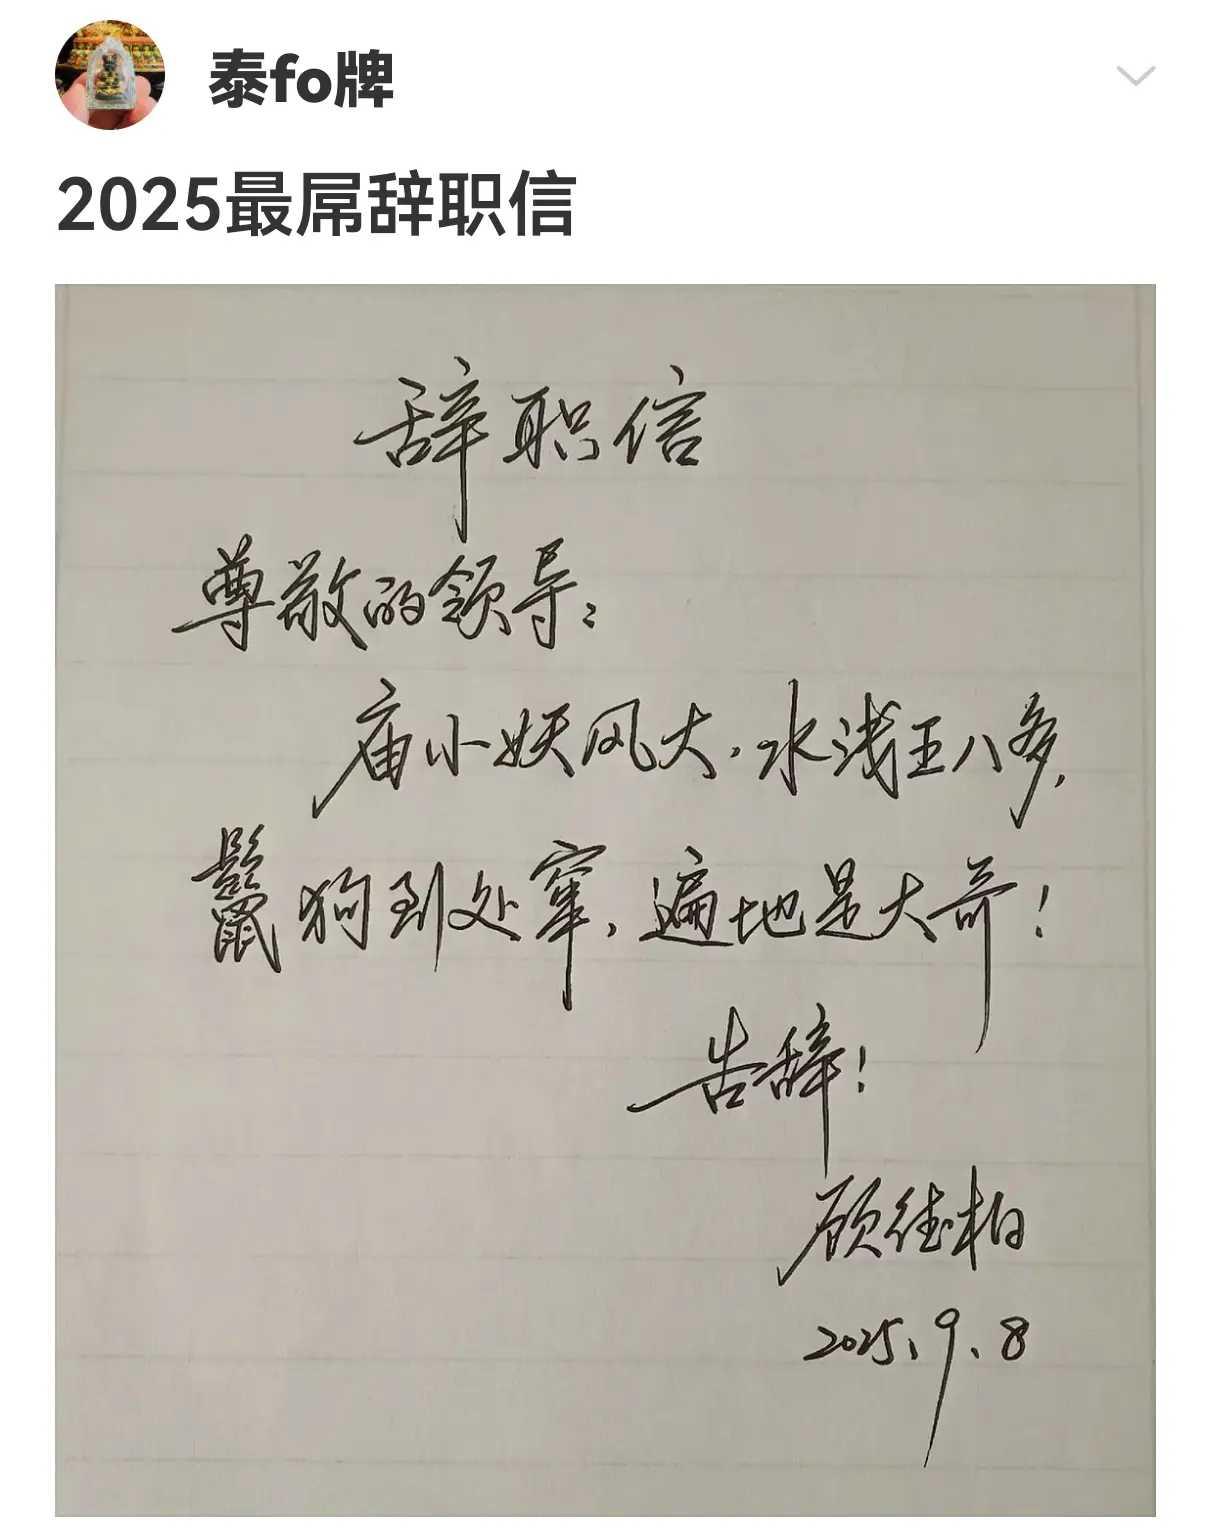 泰fo牌
2025最屌辞职信
辞职信
尊敬的领导：
庙小妖风大，水浅王八多，
鬣狗到处窜，遍地是大哥！
告辞！
顾德柏
2025.9.8